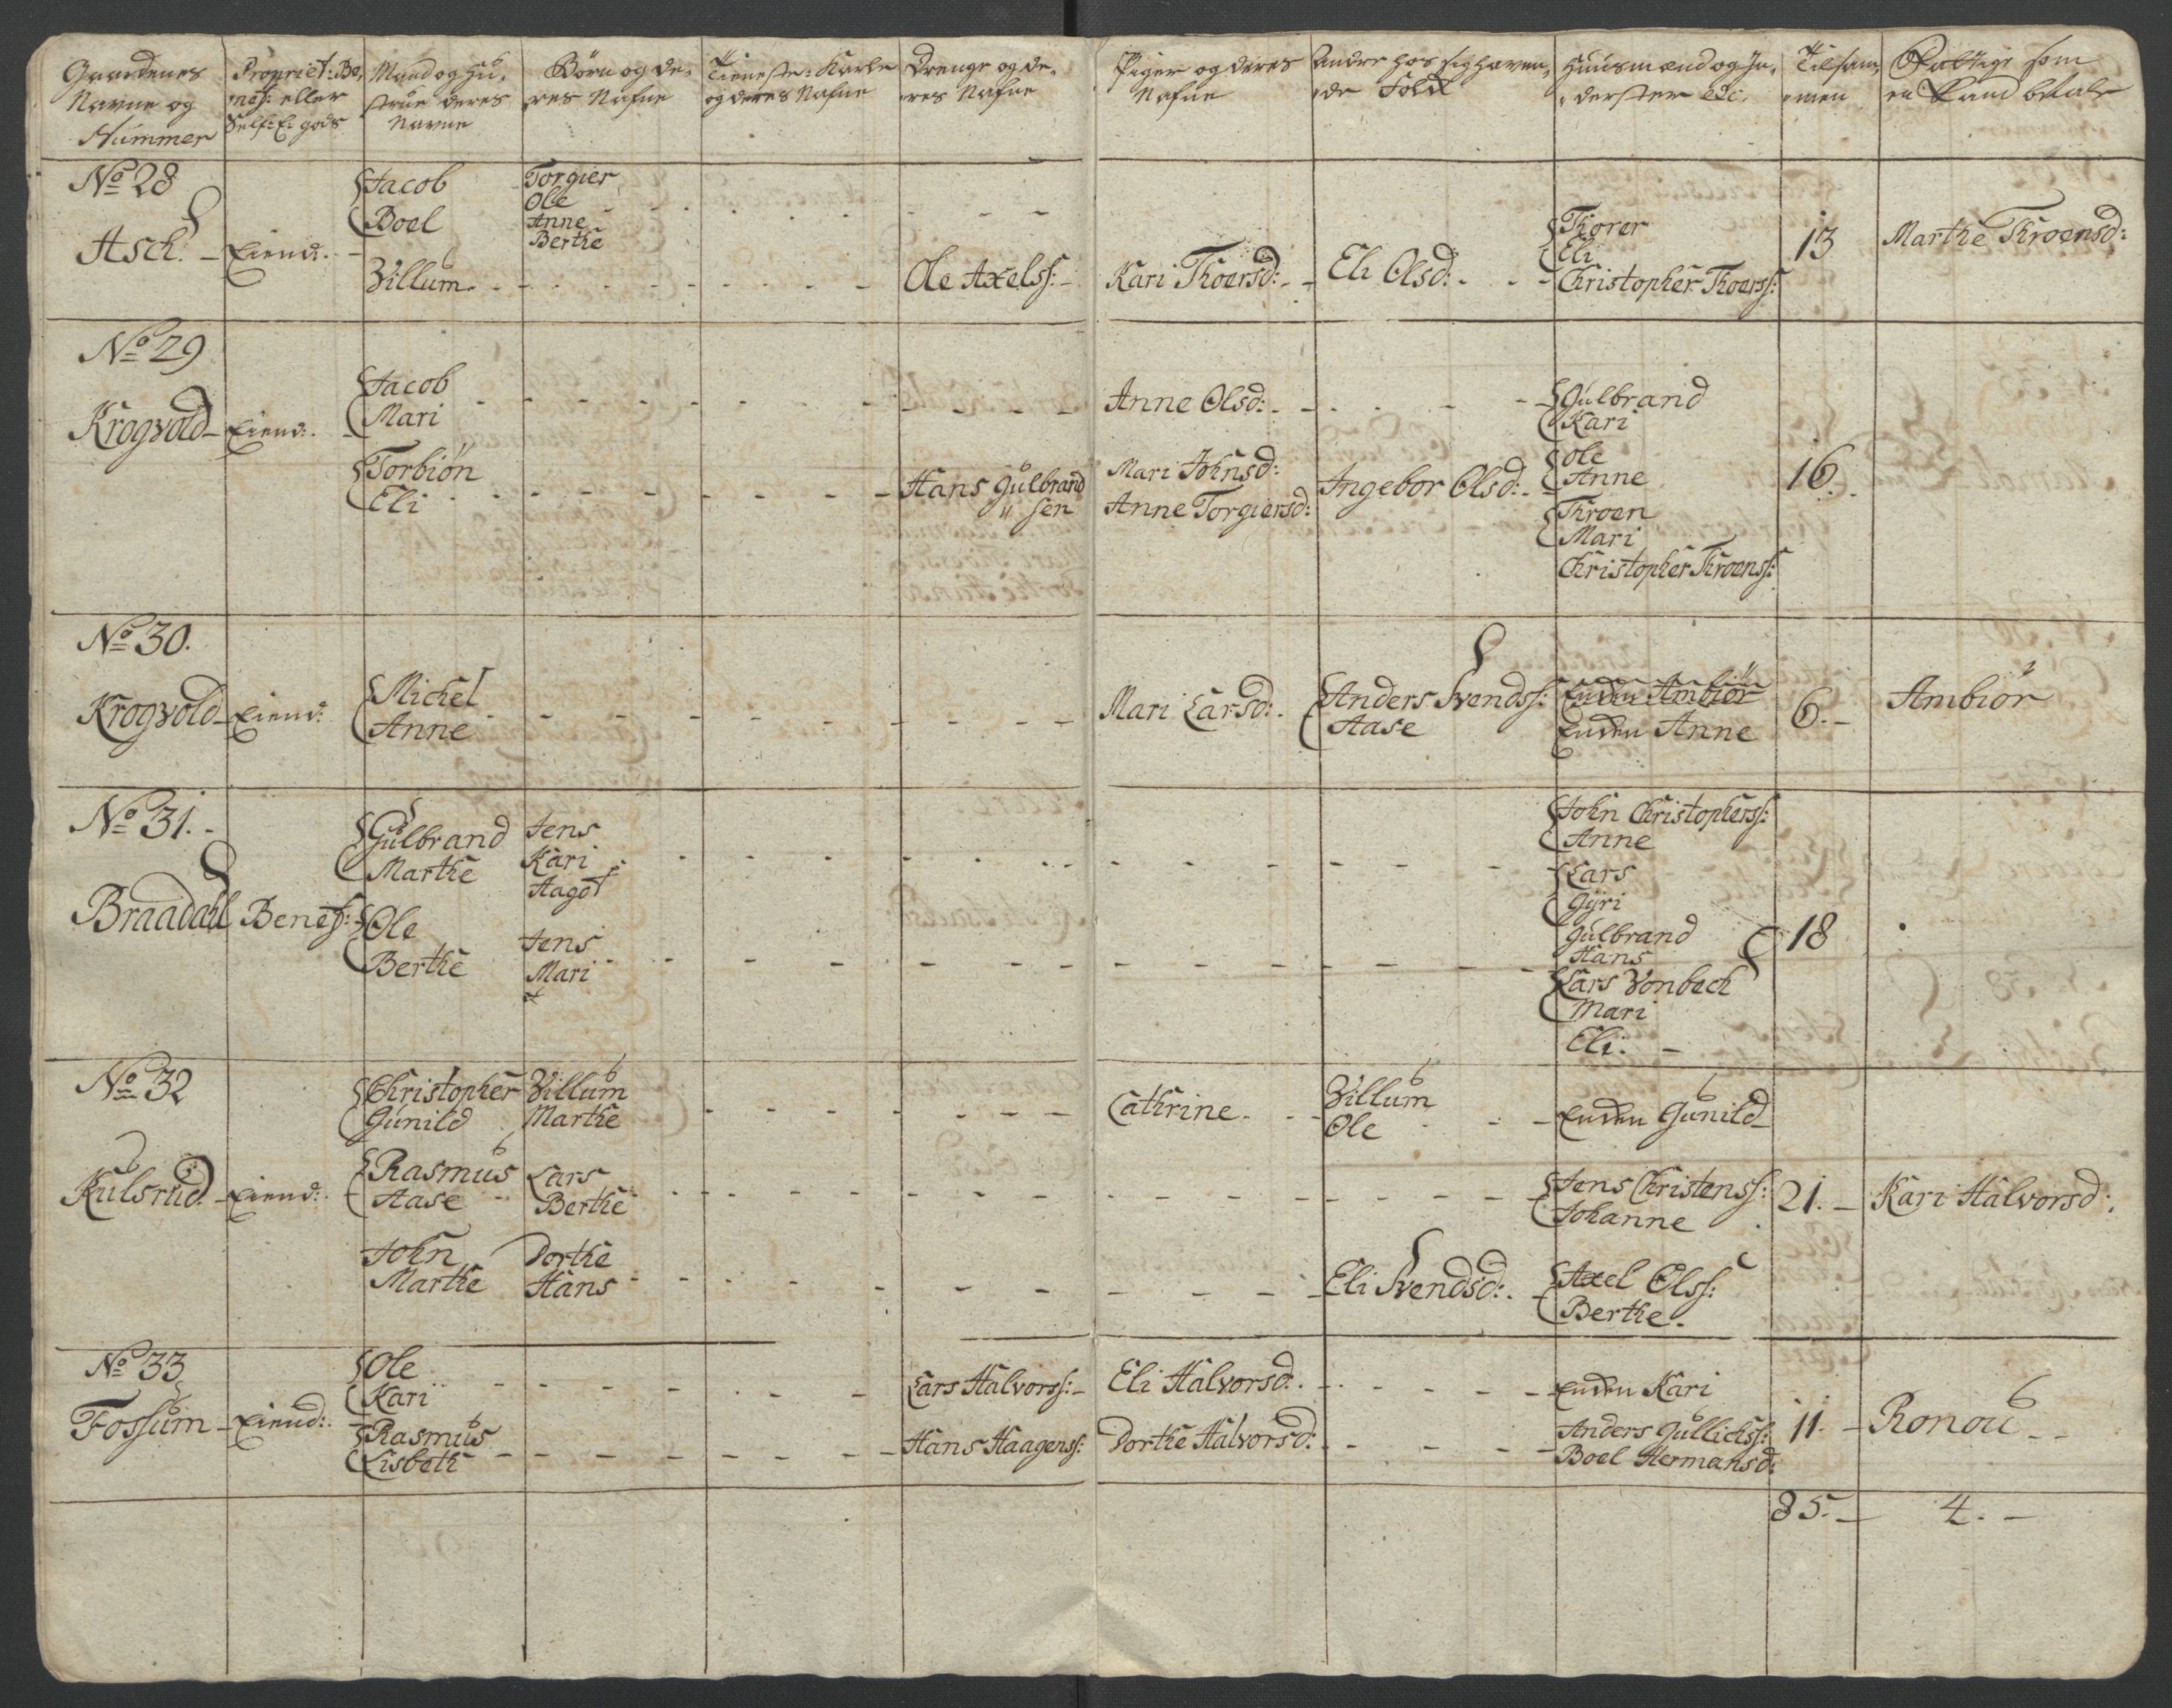 Gaardenes
Navne og
Nummer
Propriet: Be,
nef: eller
Self: E: gods
Mand og Hu,
strue deres
Navne
Børn og de,
res Nafne
Tieneste: Karle
og deres Nafne
Drenge og de,
res Nafne
Piger og deres
Nafne
Andre hos sig haven,
de Folck
Huusmænd og In,
derster etc.
Tilsam,
men
Fattige som
en Mand betale
No 28
Asch. - Eiend: -
Jacob
Boel
Villum
Torgier
Ole
Anne
Berthe
Ole Axelss:
Kari Thoersd:
Eli Olsd:
Thorer
Eli
Christopher Thoerss:
13
Marthe Throensd:
No 29
Krogvold - Eiend:
Jacob
Mari
Torbiön
Eli
Hans Gulbrand
" sen
Anne Olsd:
Mari Johnsd:
Anne Torgiersd:
Ingebor Olsd:
Gulbrand
Kari
Ole
Anne
Throen
Mari
Christopher Throenss:
16.
No 30.
Krogvold - Eiend:
Michel
Anne
Mari Larsd:
Anders Svendss:
Aase
Enken Ambiör
Enken Anne
6. -
Ambiör
No 31. -
Braadahl Benef:
Gulbrand
Marthe
Ole
Berthe
Jens
Kari
Aagot
Jens
Mari
John Christopherss:
Anne
Lars
Gyri
Gulbrand
Hans
Lars Vonbech
Mari
Eli. -
18
No 32
Kulsrud. - Eiend:
Christopher
Gunild
Rasmus
Aase
John
Marthe
Villum
Marthe
Lars
Berthe
Dorthe
Hans
Cathrine.
Villum
Ole
Eli Svendsd:
Enken Gunild
Jens Christenss:
Johanne
Axel Olss:
Berthe.
21. -
Kari Halvorsd:
No 33
Fossum - Eiend:
Ole
Kari
Rasmus
Lisbeth
Lars Halvorss: -
Hans Haagenss:
Eli Halvorsd:
Dorthe Halvorsd:
Enken Kari
Anders Gullichss:
Boel Hermansd:
11. -
Ronou - -
85. -
4. -